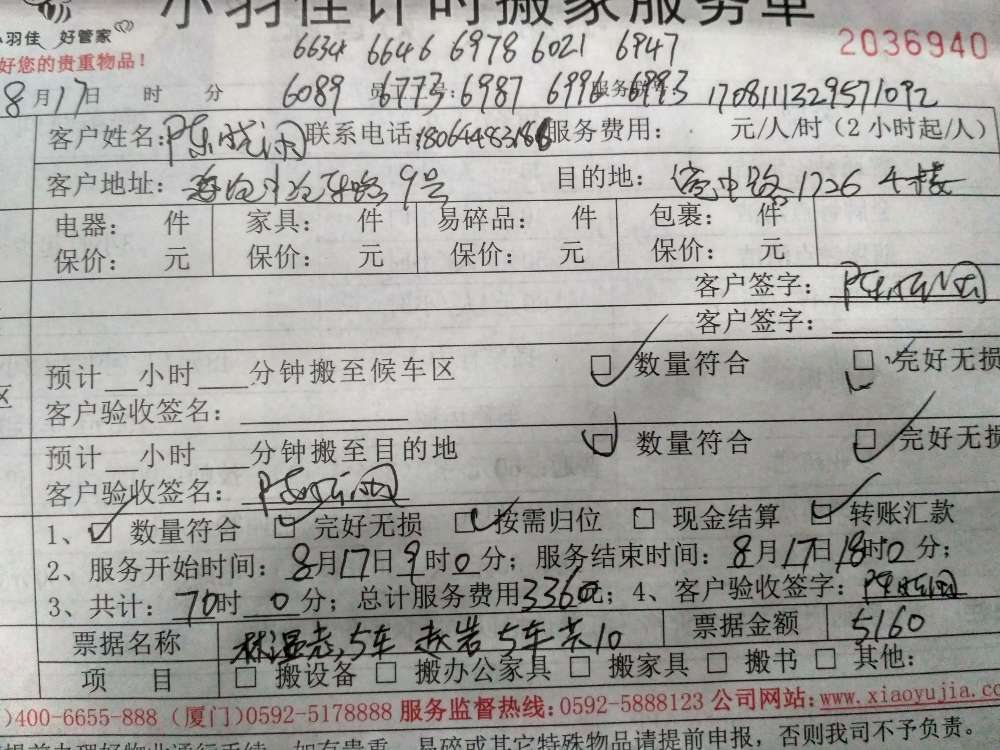 小羽佳计时搬家服务单
小羽佳 好管家
好您的贵重物品!
6634 6646 6978 6021 6947
2036940
8月17日 时 分 6089 6773 号: 6987 6996 服务 6993 1708111329571092
客户姓名: 陈晓闽 联系电话: 服务费用: 元/人/时(2小时起/人)
客户地址: 路9号 目的地: 路1726
电器: 件 家具: 件 易碎品: 件 包裹: 件
保价: 元 保价: 元 保价: 元 保价: 元
客户签字:
客户签字:
预计__小时___分钟搬至候车区 □ 数量符合 □ 完好无损
区
客户验收签名:
预计__小时___分钟搬至目的地 □ 数量符合 □ 完好无损
客户验收签名:
1、□ 数量符合 □ 完好无损 □ 按需归位 □ 现金结算 □ 转账汇款
2、服务开始时间: 8月17日9时0分; 服务结束时间: 8月17日18时0分;
3、共计: 70时 0分; 总计服务费用3360元; 4、客户验收签字:
票据名称 林温志,5车 赵岩5车共10 票据金额 5160
项 目 □ 搬设备 □ 搬办公家具 □ 搬家具 □ 搬书 □ 其他:
)400-6655-888 (厦门)0592-5178888 服务监督热线:0592-5888123 公司网站:www.xiaoyujia.co
易碎或其它特殊物品请提前申报,否则我司不予负责。